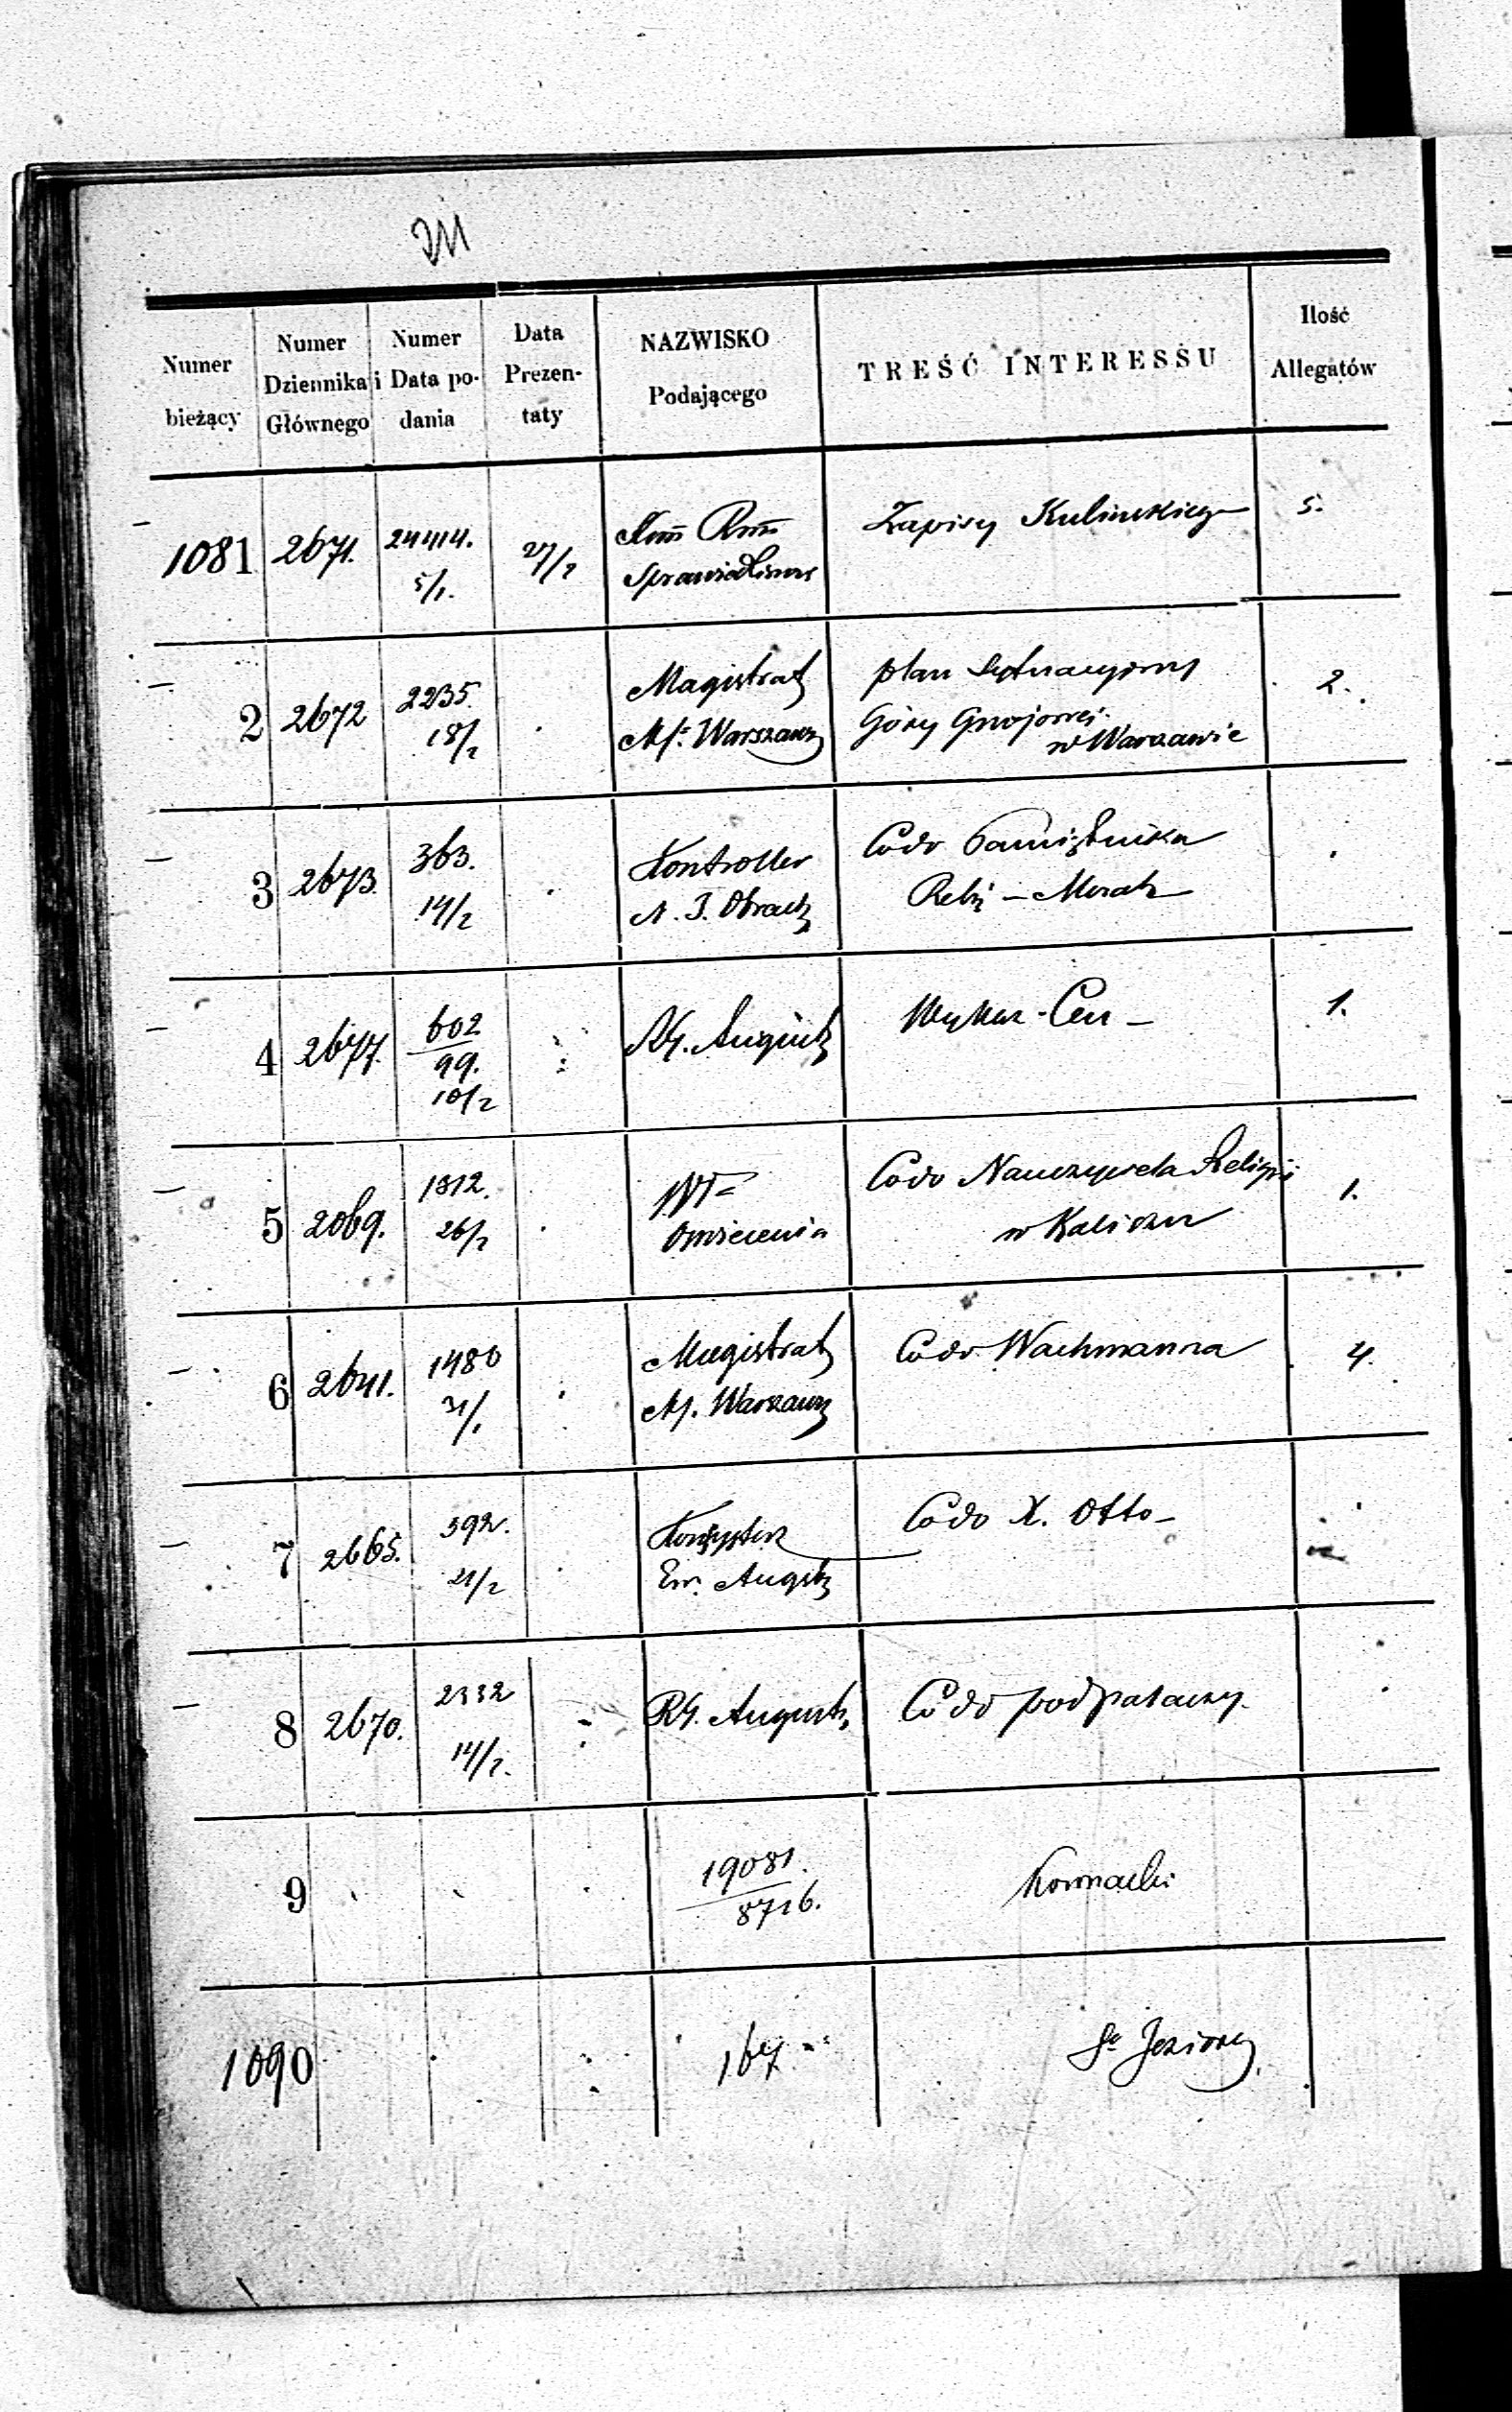 Numer bieżący
Numer Dziennika Głównego
Numer i Data podania
Data Prezentaty
NAZWISKO Podającego
TREŚĆ INTERESSU
Ilość Allegatów
1081 2671. 24414. 5/1. 27/2 Sprawiedliwos Zapisy Kulinskiego 5.
2 2672 2235. 18/2 Magistrat Mş. Warszawy plan Sytuacyjny
Góry Gnojowej
w Warszawie 2.
3 2673. 363. 14/2 Kontroller Codo Pamiętnika
Relig – Moral
4 2677. 602
99.
10/2 RG. August 1.
5 2069. 1312. 26/2 Oświecenia Codo Nauczyciela Religii
w Kaliszu 1.
6 2641. 1480 31/1 Magistrat M. Warszawy Codo Wachmanna 4.
7 2665. 392. 21/2 Konsystorz
Ew. Augsb Codo X. Otto –
8 2670. 2332 14/2. RG. August Codo podpałaczy.
9 19081.
8716. Kownacki
1090 167. Jeziory